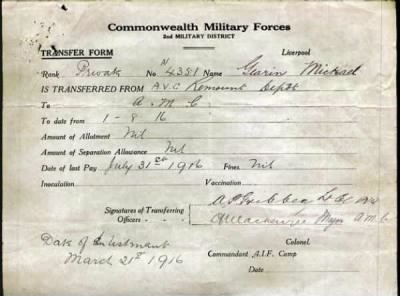 Commonwealth Military Forces
2nd MILITARY DISTRICT
TRANSFER FORM Liverpool
Rank Private No N 4381 Name Michael
IS TRANSFERRED FROM A.V.C Remount Depôt
To A. M. C.
To date from 1 - 8 16
Amount of Allotment Nil
Amount of Separation Allowance Nil
Date of last Pay July 31st 1916 Fines Nil
Inoculation Vaccination
Signatures of Transferring
Officers - - - Major A.M.C
Date of Enlistment
March 21st 1916
Colonel
Commandant A.I.F. Camp
Date